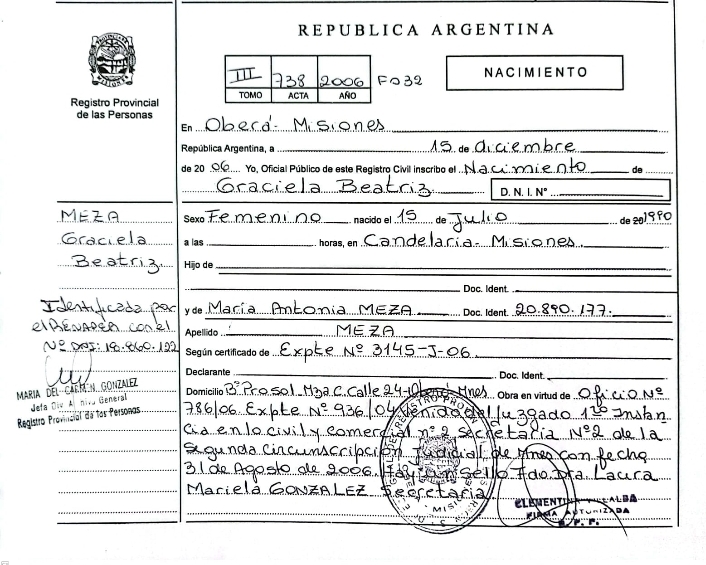 REPUBLICA ARGENTINA
Registro Provincial
de las Personas
III 738 2006 F032
TOMO ACTA AÑO
NACIMIENTO
En Oberá - Misiones
República Argentina, a 15 de diciembre
de 20 06 Yo, Oficial Público de este Registro Civil inscribo el Nacimiento de
Graciela Beatriz D.N.I. Nº
MEZA
Graciela
Beatriz
Sexo Femenino nacido el 15 de Julio de 1990
a las horas, en Candelaria - Misiones
Hijo de
Doc. Ident.
y de María Antonia MEZA Doc. Ident. 20.890.177.
Apellido MEZA
Según certificado de Expte Nº 3145-J-06
Declarante Doc. Ident.
Identificada por
el RENAPER con el
Nº DNI: 18.860.122
MARIA DEL CARMEN GONZALEZ
Jefa Div Archivo General
Registro Provincial de las Personas
Domicilio Bº Prosol Mza C. Calle 24 - Oberá - Mnes Obra en virtud de Oficio Nº
786/06 Expte Nº 936/04 venido del Juzgado 1ra Instan
cia en lo civil y comercial nº 2 Secretaria Nº 2 de la
Segunda circunscripción Judicial de Mnes con fecha
31 de Agosto de 2006. Hay un Sello Fdo. Dra Laura
Mariela GONZALEZ Secretaria
MISIONES
CLEMENTINA VILLALBA
FIRMA AUTORIZADA